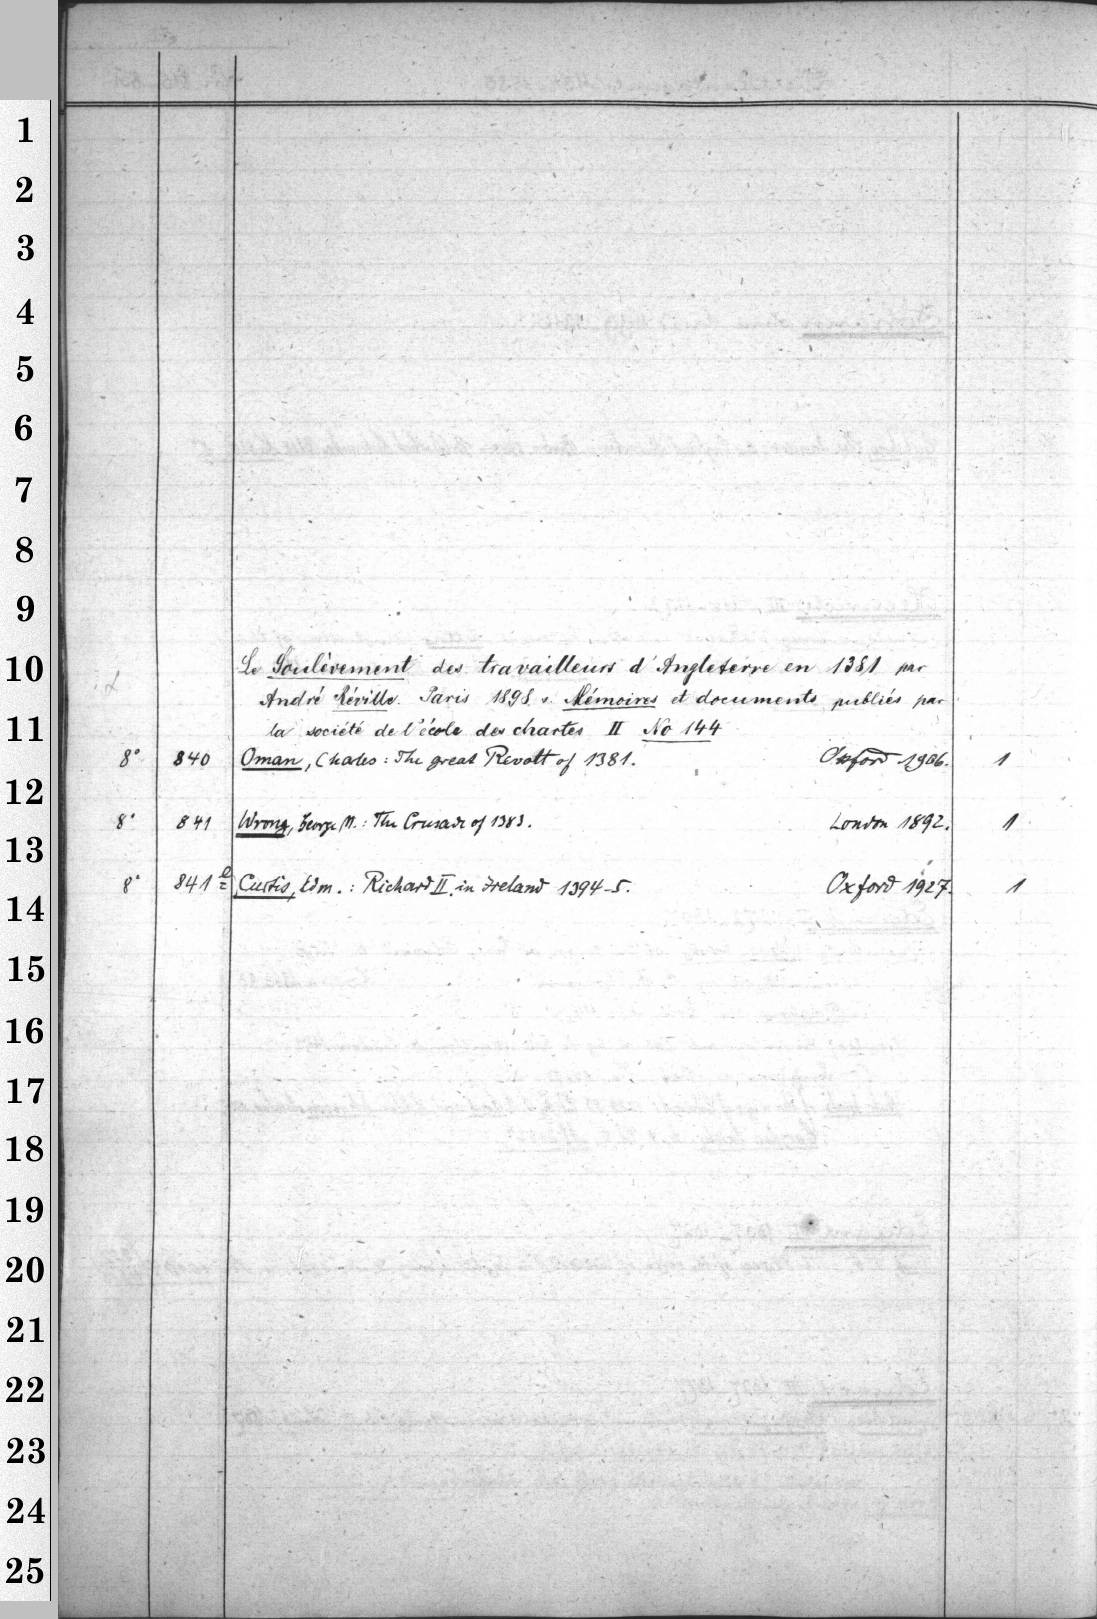 1
2
3
4
5
6
7
8
9
10
11
12
13
14
15
16
17
18
19
20
21
22
23
24
25
Le Soulèvement des travailleurs d'Angleterre en 1381 par
André Réville. Paris 1898 s. Mémoires et documents publiés par
la société de l'école des chartes II No 144
8° 840 Oman, Charles: The great Revolt of 1381. Oxford 1906. 1
8° 841 Wrong, George M.: The Crusade of 1383. London 1892. 1
8° 841 b Curtis, Edm.: Richard II. in Ireland 1394-5. Oxford 1927. 1